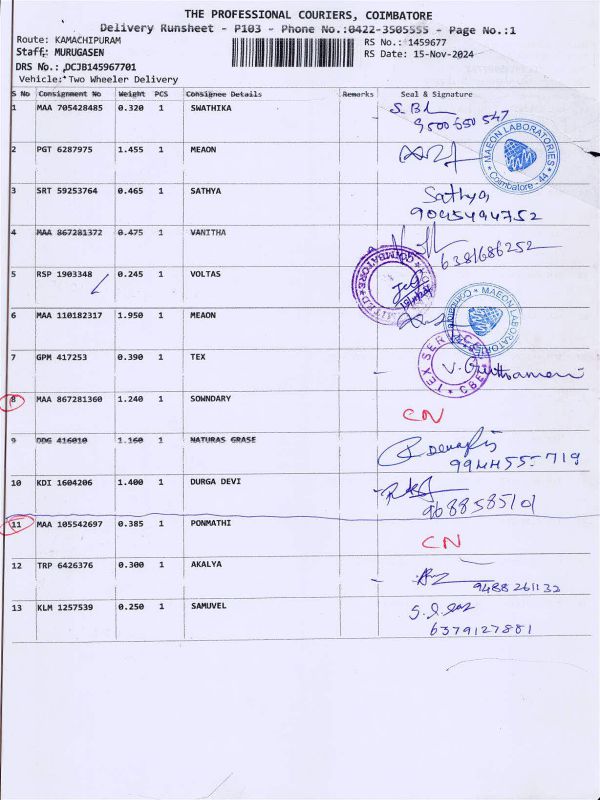 THE PROFESSIONAL COURIERS, COIMBATORE
Delivery Runsheet - P103 - Phone No.:0422-3505555 - Page No.:1
Route: KAMACHIPURAM RS No.: 1459677
Staff: MURUGASEN RS Date: 15-Nov-2024
DRS No.: DCJB145967701
Vehicle: Two Wheeler Delivery
S No Consignment No Weight PCS Consignee Details Remarks Seal & Signature
1 MAA 705428485 0.320 1 SWATHIKA
9500650547
2 PGT 6287975 1.455 1 MEAON
MAEON LABORATORIES Coimbatore - 44
3 SRT 59253764 0.465 1 SATHYA Sathya
9045494752
4 MAA 867281372 0.475 1 VANITHA
6381686252
5 RSP 1903348 0.245 1 VOLTAS
COIMBATORE
6 MAA 110182317 1.950 1 MEAON
MAEON LABORATORIES
7 GPM 417253 0.390 1 TEX
TEX SERVICE CBE
8 MAA 867281360 1.240 1 SOWNDARY
CN
9 DDG 416010 1.160 1 NATURAS GRASE
9944555719
10 KDI 1604206 1.400 1 DURGA DEVI
9688585101
11 MAA 105542697 0.385 1 PONMATHI
CN
12 TRP 6426376 0.300 1 AKALYA
9488261132
13 KLM 1257539 0.250 1 SAMUVEL
6379127881